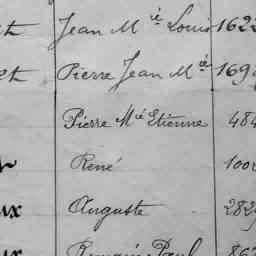 et Jean Mie Louis 162
et Pierre Jean Mie 169
Pierre Mie Etienne 484
René 100
ux Auguste 282
ux Romain Paul 86